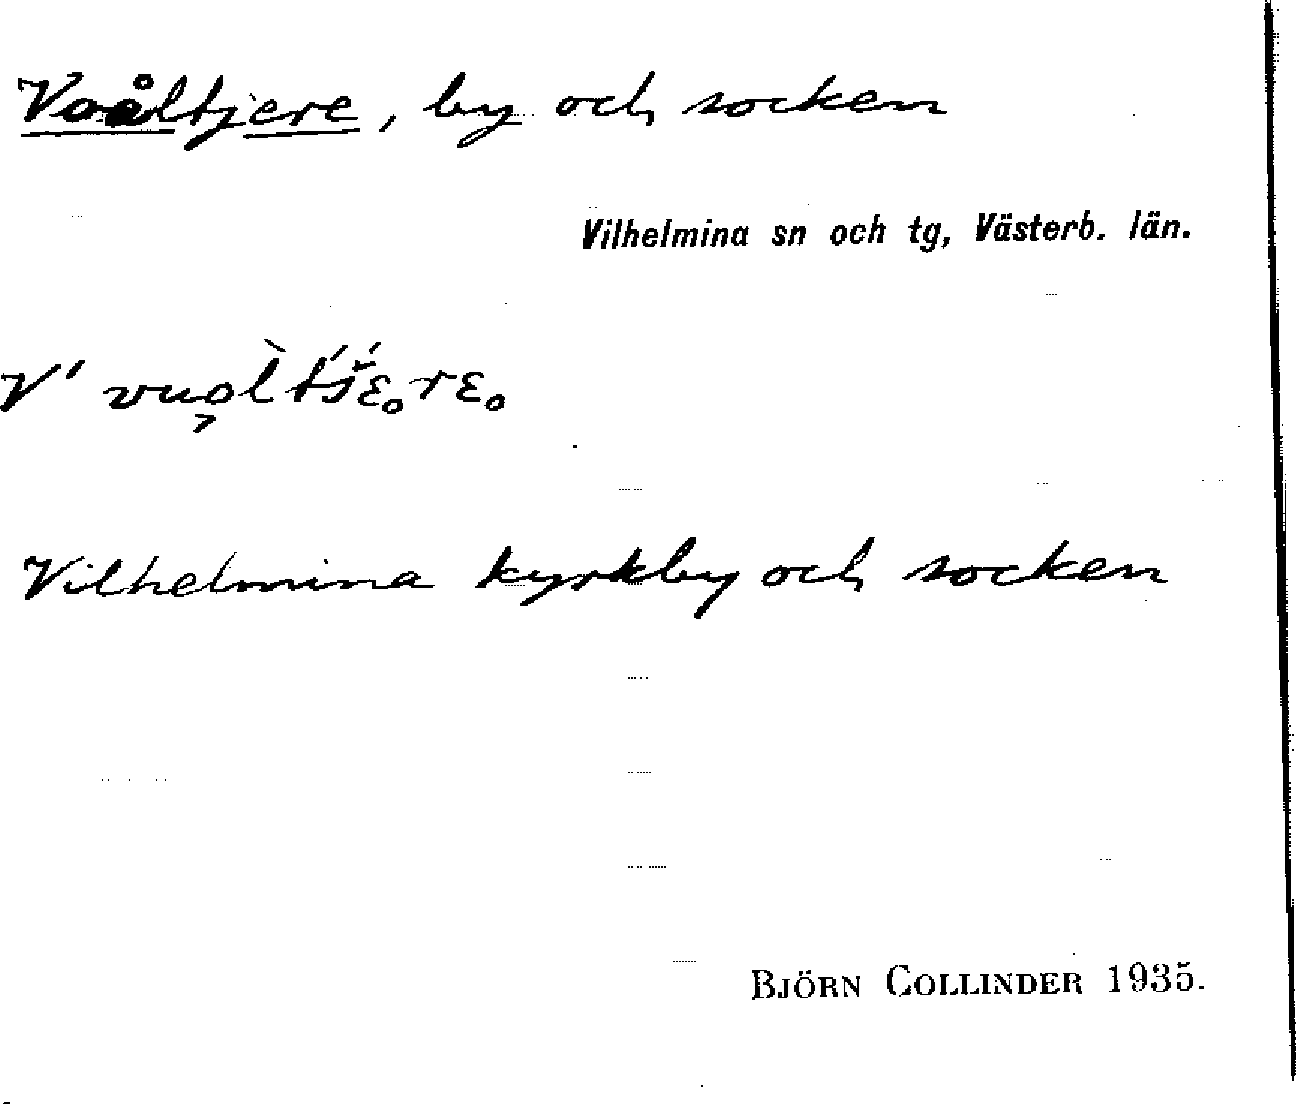 Voåltjere, by och socken
Vilhelmina sn och tg, Västerb. län.
Vilhelmina kyrkby och socken
BJÖRN COLLINDER 1935.